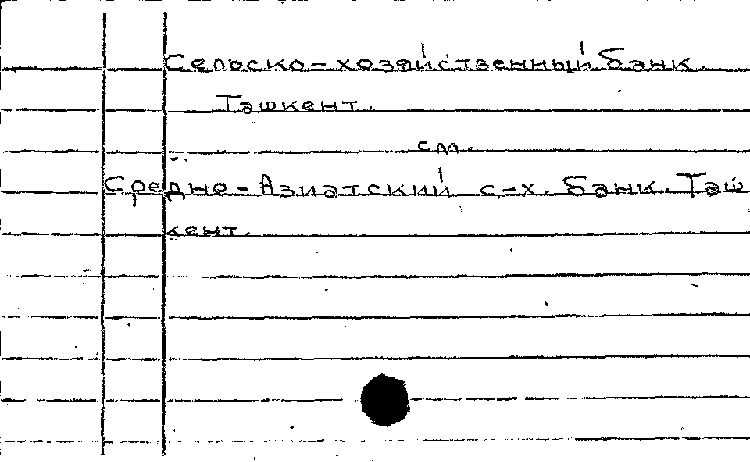 Сельско-хозяйственный банк.
Ташкент.
см.
Средно-Азиатский с-х. банк. Таш
кент.